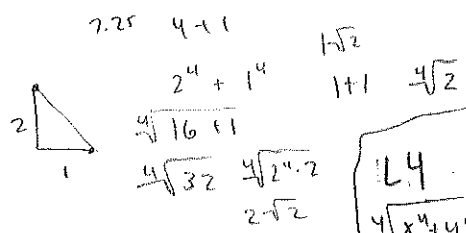 2.25 4+1
1-√2
2⁴ + 1⁴
1+1 ⁴√2
2
⁴√16+1
1
⁴√32 ⁴√2⁴·2
L4
2-√2
⁴√x⁴+y⁴